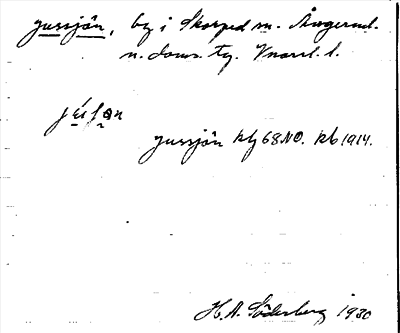 Jussjön, by i Skorped sn. Ångerml.
n. doms. tg. Vnorrl. l.
Jussjön kbj 68 NO. kb 1914.
H. A. Söderberg 1930